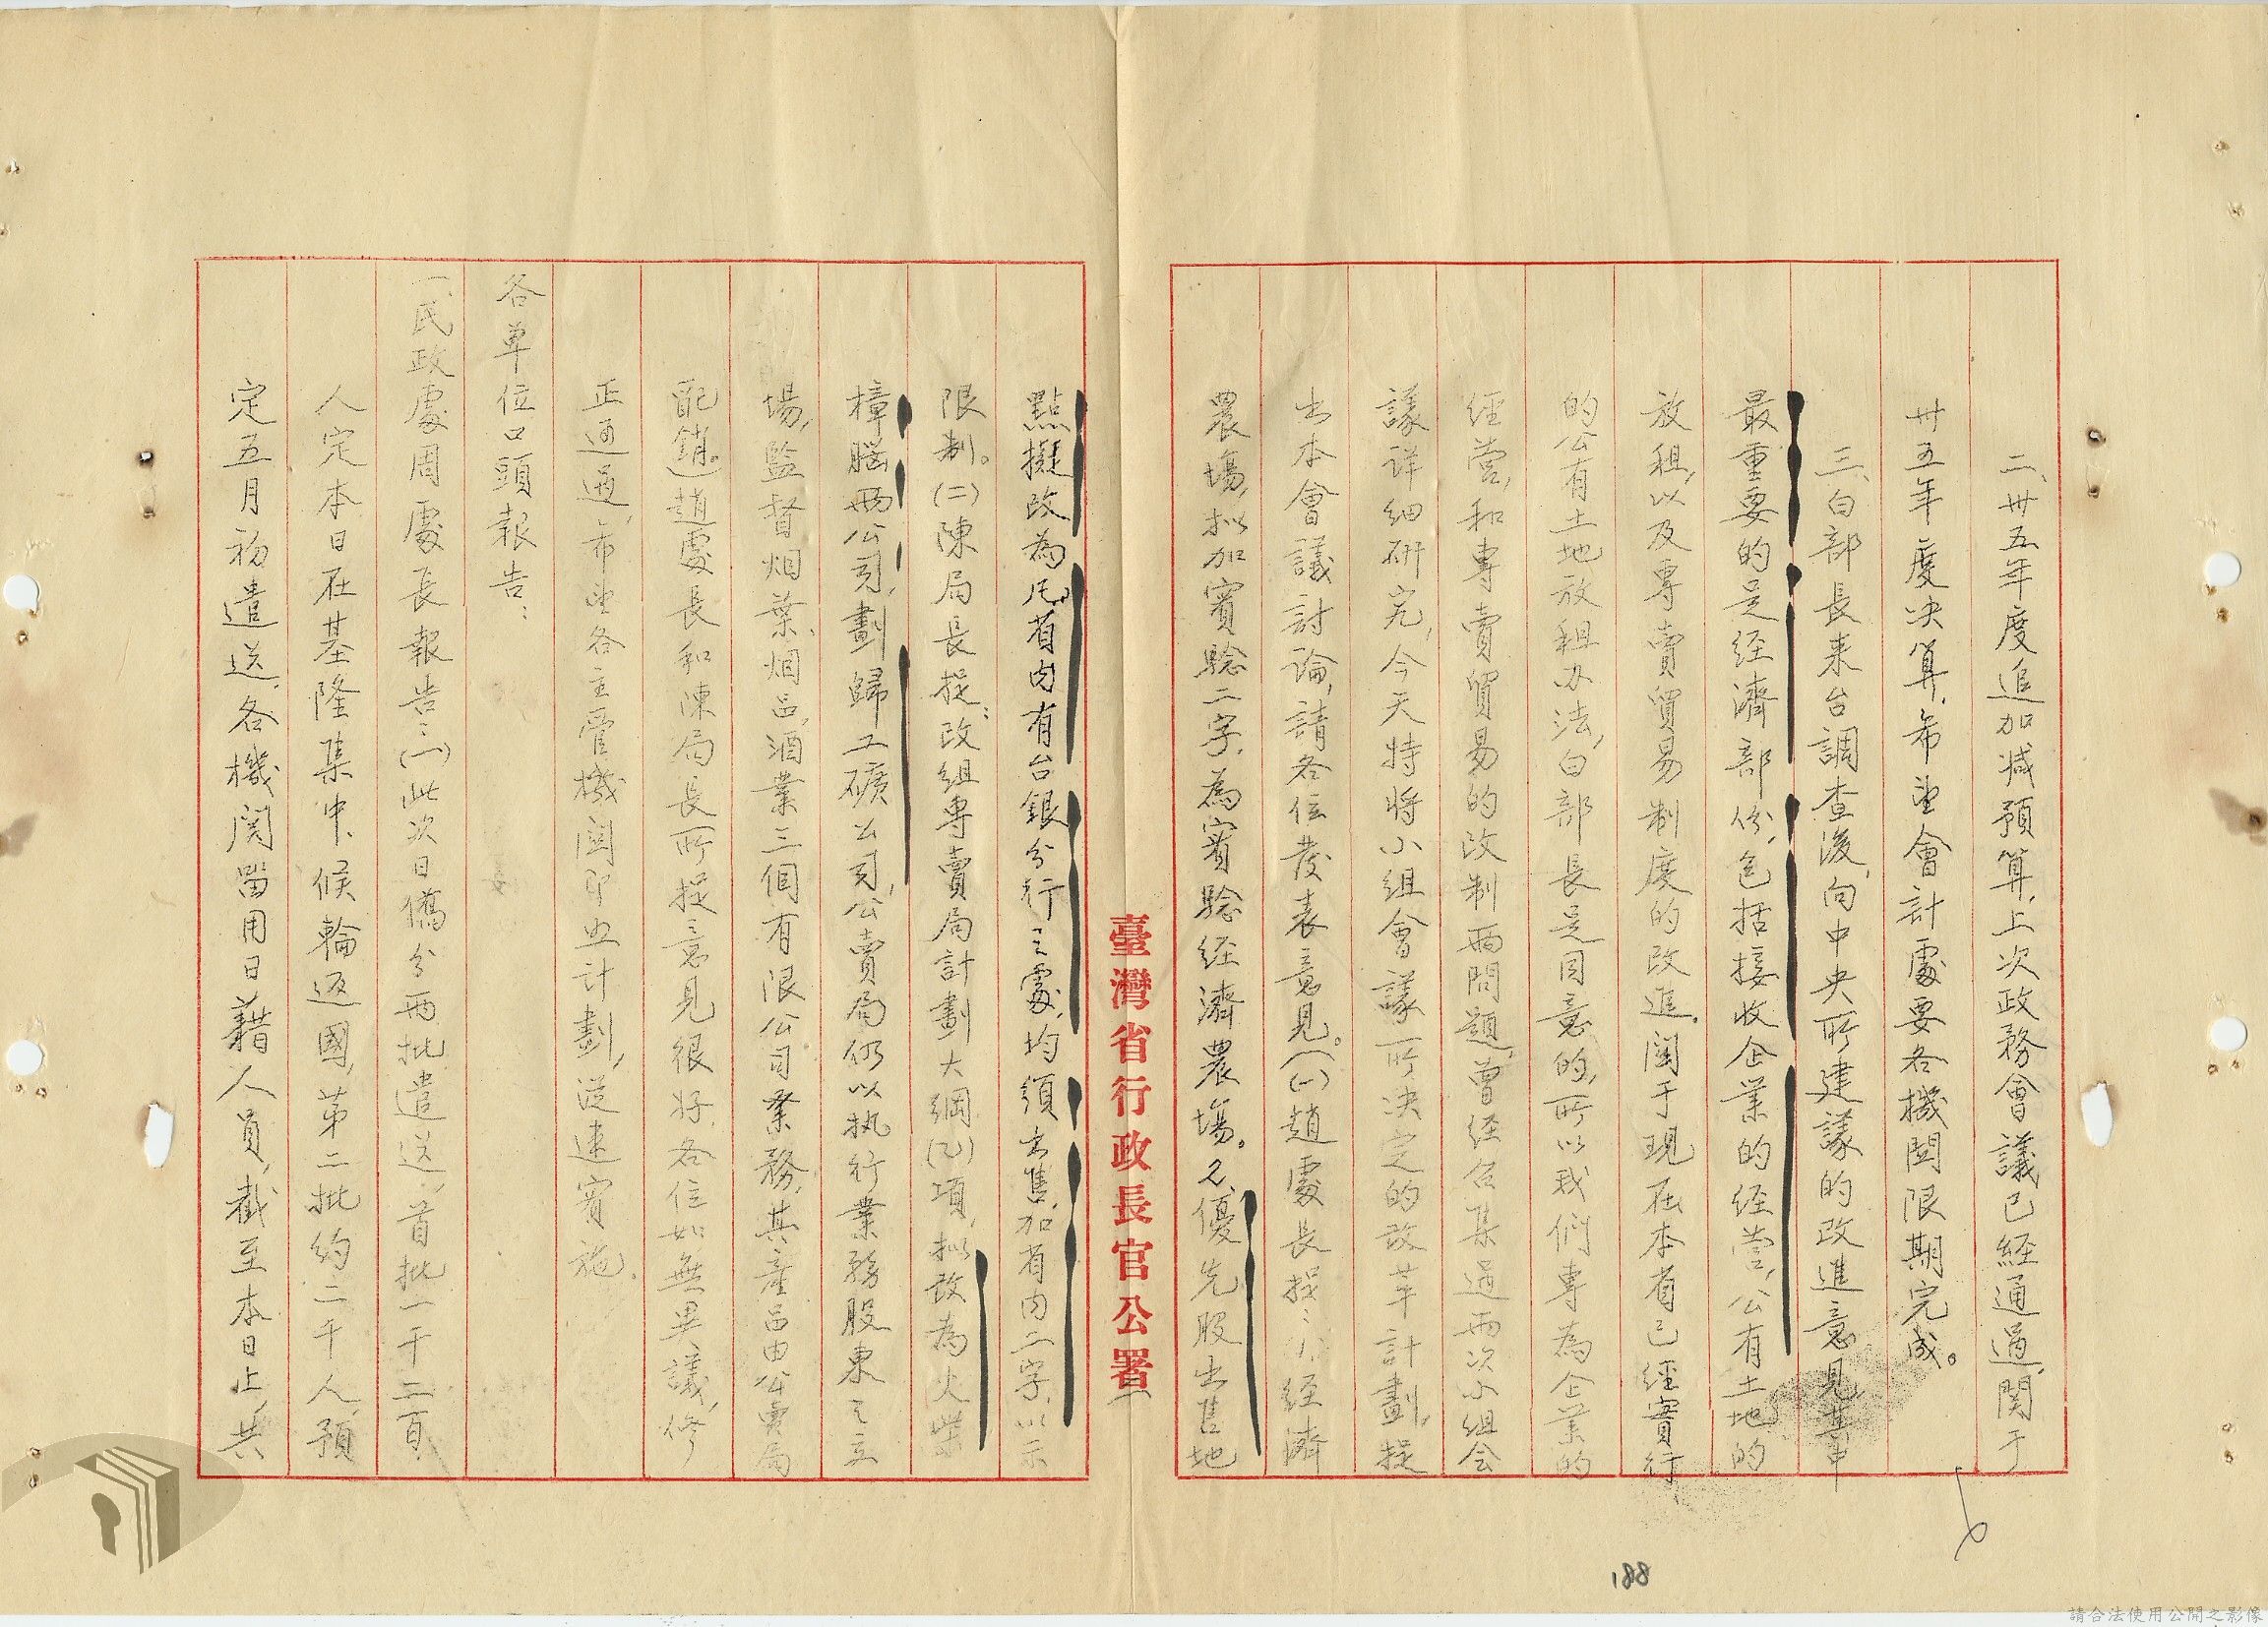 二、卅五年度追加減預算，上次政務會議已經通過，関于
卅五年度决算，希望會計處要各機関限期完成。
三、白部長来台調查後，向中央所建議的改進意見，其中
最重要的是经濟部份，包括接收企業的经营，公有土地的
放租，以及專賣貿易制度的改進。関于現在本省已經實行
的公有土地放租办法，白部長是同意的，所以我們專為企業的
经营，和專賣貿易的改制兩問題，曾经召集過兩次小组会
議详细研究，今天特将小组會議所决定的改革計劃，提
出本會議討論，請各位發表意見。(一)趙處長提：1、经濟
農場，拟加實驗二字，為實驗经濟農場。2、優先股出售地
點擬改為凡省内有台銀分行之處，均須出售，加省内二字，以示
限制。(二)陳局長提：改组專賣局計劃大綱(乙)項，拟改為火柴
樟脳兩公司，劃歸工礦公司，公賣局仍以执行業務股東之立
場，監督烟葉、烟品、酒業三個有限公司業務，其產品由公賣局
配銷。趙處長和陳局長所提意見很好，各位如無異議，修
正通過，希望各主管機関即照計劃，從速實施。
各單位口頭報告：
一、民政處周處長報告：(一)此次日僑分兩批遣送，首批一千二百
人定本日在基隆集中，候輪返國，第二批約二千人，預
定五月初遣送，各機関畱用日籍人員，截至本日止，共
臺灣省行政長官公署
188
請合法使用公開之影像